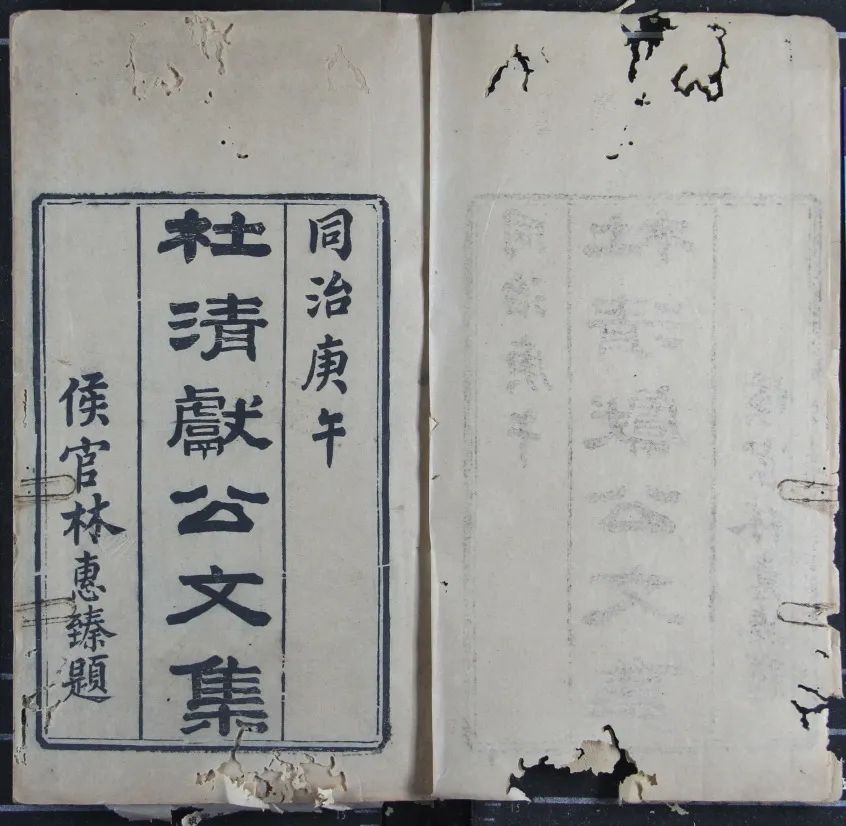 同治庚午
杜清獻公文集
侯官林惠臻題